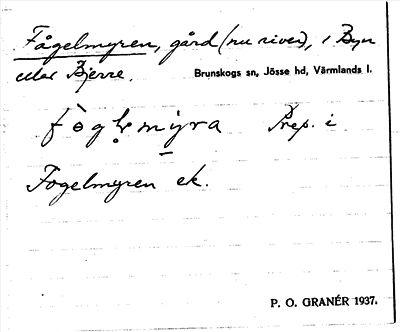 Fågelmyren, gård (nu river), i Byn
eller Bjerre.
Brunskogs sn, Jösse hd, Värmlands l.
Prep. i
Fogelmyren ek.
P. O. GRANÉR 1937.